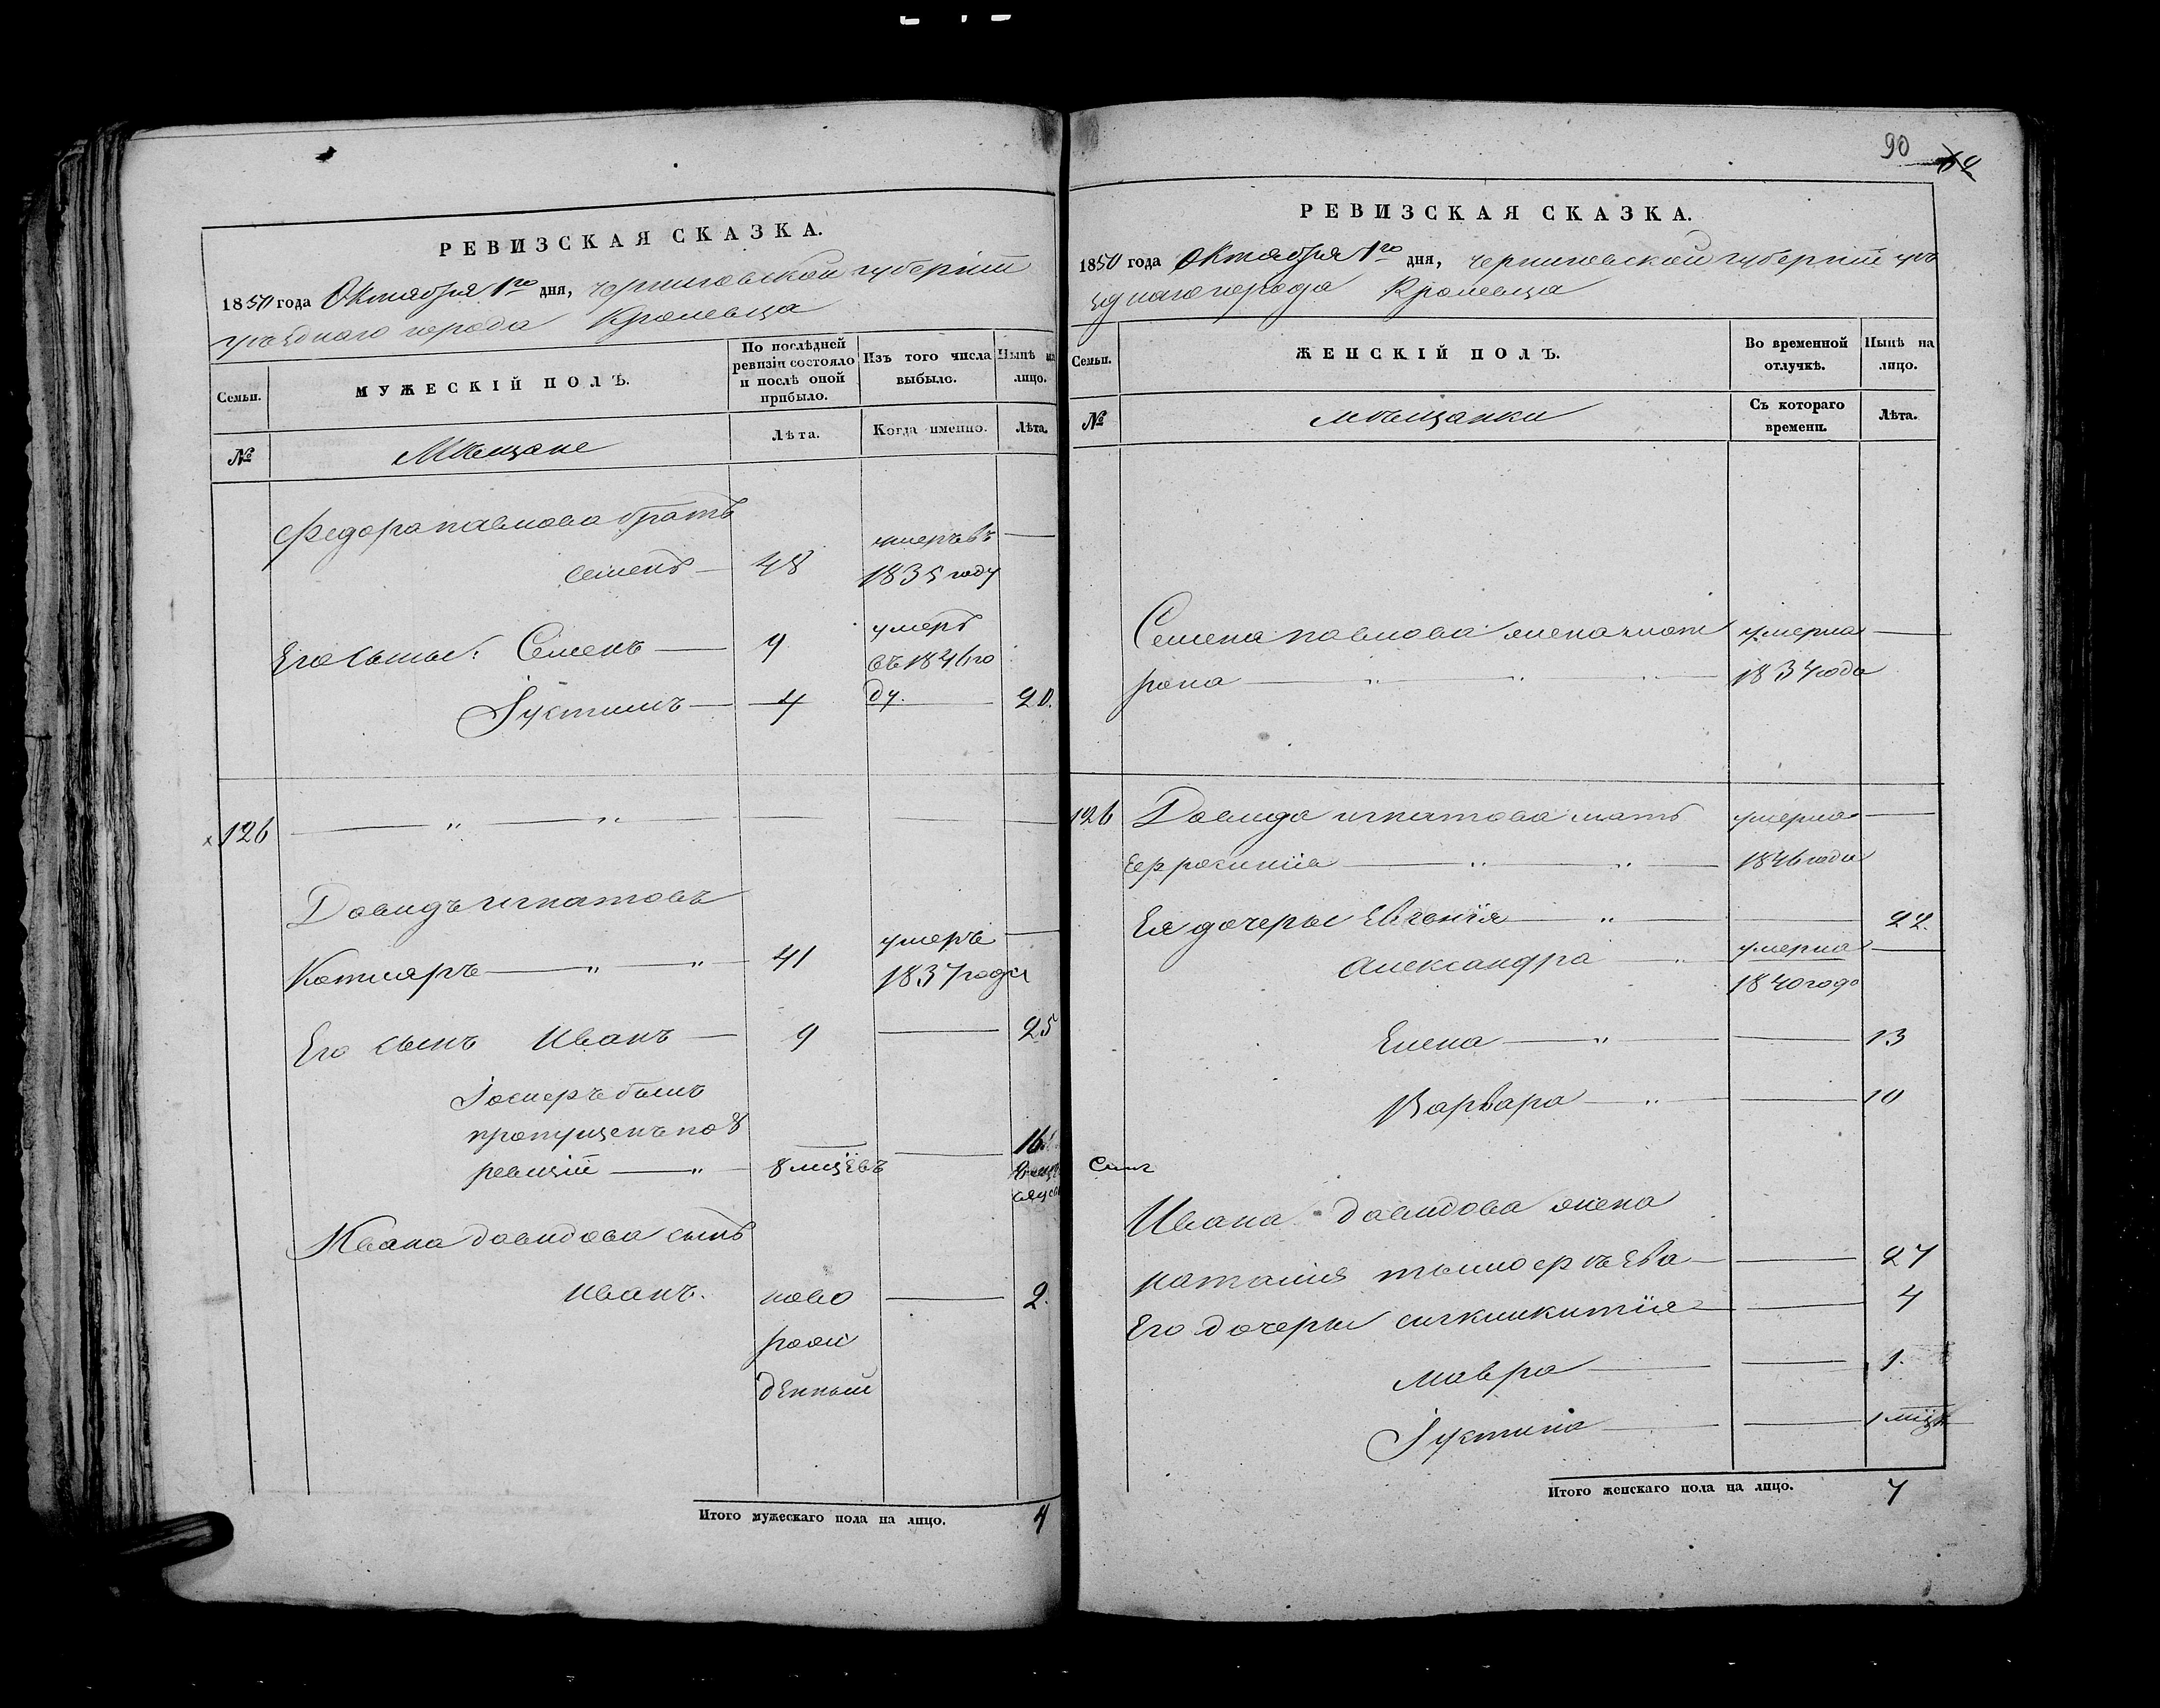 РЕВИЗСКАЯ СКАЗКА.
1850 года Октября 1го дня, черниговской губерніи
уѣзднаго города Кролевца
Семьи. МУЖЕСКІЙ ПОЛЪ. По послѣдней ревизіи состояло и послѣ оной прибыло. Изъ того числа выбыло. Нынѣ на лицо.
№ Мѣщане Лѣта. Когда именно. Лѣта.
Федора павлова братъ
семенъ 48 умеръ въ 1835 году
Его сыны: Семенъ 9 умеръ
въ 1846 го
ду.
Іустинъ 4 20.
126
Давидъ игнатовъ
Котляръ 41 умеръ 1837 года
Его сынъ Иванъ 9 25
Іосифъ былъ
пропущенъ по 8
ревизіи 8 мцѣвъ 16
Ивана давидова сынъ
иванъ. ново 2.
рож
денный
Итого мужескаго пола на лицо. 4
90
РЕВИЗСКАЯ СКАЗКА.
1850 года Октября 1го дня, черниговской губерніи уѣ
зднаго города Кролевца
Семьи. ЖЕНСКІЙ ПОЛЪ. Во временной отлучкѣ. Нынѣ на лицо.
№ мѣщанки Съ котораго времени. Лѣта.
Семена павлова жена мат умерла
рона 1837 года
126 Давида игнатова мать умерла
Ефросинія 1846 года
Ея дочеры Евгенія 22.
Александра умерла
1840 года
Елена 13
Варвара 10
Ивана давидова жена
наталія 27
Его дочеры 4
мавра 1.
Іустина 1 мцъ
Итого женскаго пола на лицо. 7